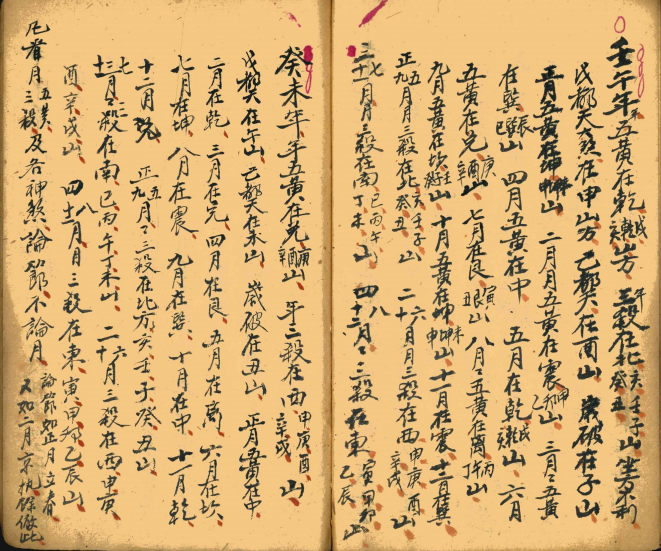 壬午年年五黄在乾戌乾亥山方 年三殺在北亥壬子癸丑山 坐东利
戊都天煞在申山方 己都天在酉山 歲破在子山
正月五黄在坤申坤未山 二月月五黄在震甲卯乙山 三月月五黄
在巽辰巽巳山 四月五黄在中 五月在乾戌乾亥山 六月
五黄在兑庚酉辛山 七月在艮寅艮丑山 八月月五黄在离丙午丁山
九月五黄在坎壬子癸山 十月五黄在坤未坤申山 十一月在震 十二月在巽
正五九月月三殺在北亥壬子癸丑山 二六十月月三殺在西申庚酉辛戌山
三七十一月月三殺在南巳丙午丁未山 四八十二月月三殺在東寅甲卯乙辰山
癸未年年五黄在兑庚酉辛山 年三殺在西申庚酉辛戌山
戊都天在午山 己都天在未山 歲破在丑山 正月五黄在中
二月在乾 三月在兑 四月在艮 五月在离 六月在坎
七月在坤 八月在震 九月在巽 十月在中 十一月乾
十二月兑 正五九月月三殺在北方亥壬子癸丑山
三七十一月月三殺在南巳丙午丁未山 二六十月三殺在西申庚
酉辛戌山 四八十二月月三殺在東寅甲卯乙辰山
凡者月五黄三殺及各神煞論節不論月 論節如正月立春
又如二月京执餘倣此